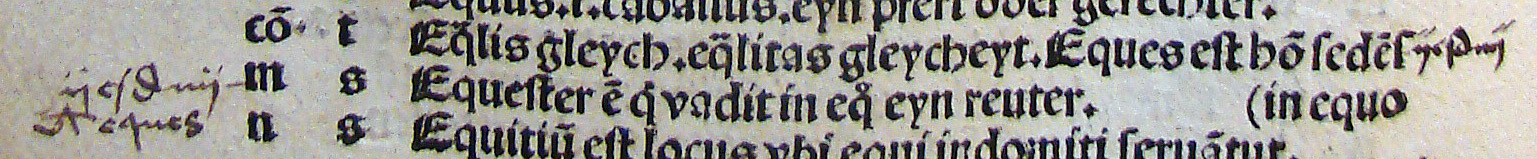 Equus.i.caballus.eyn pfert oder gerechter.
cō t Eq̄lis gleych.eq̄litas gleycheyt.Eques est hō sedēs
m s Equester ē q̇ vadit in eq̊ eyn reuter. (in equo
eques n s Equitiū est locus vbi equi indomiti seruātur.